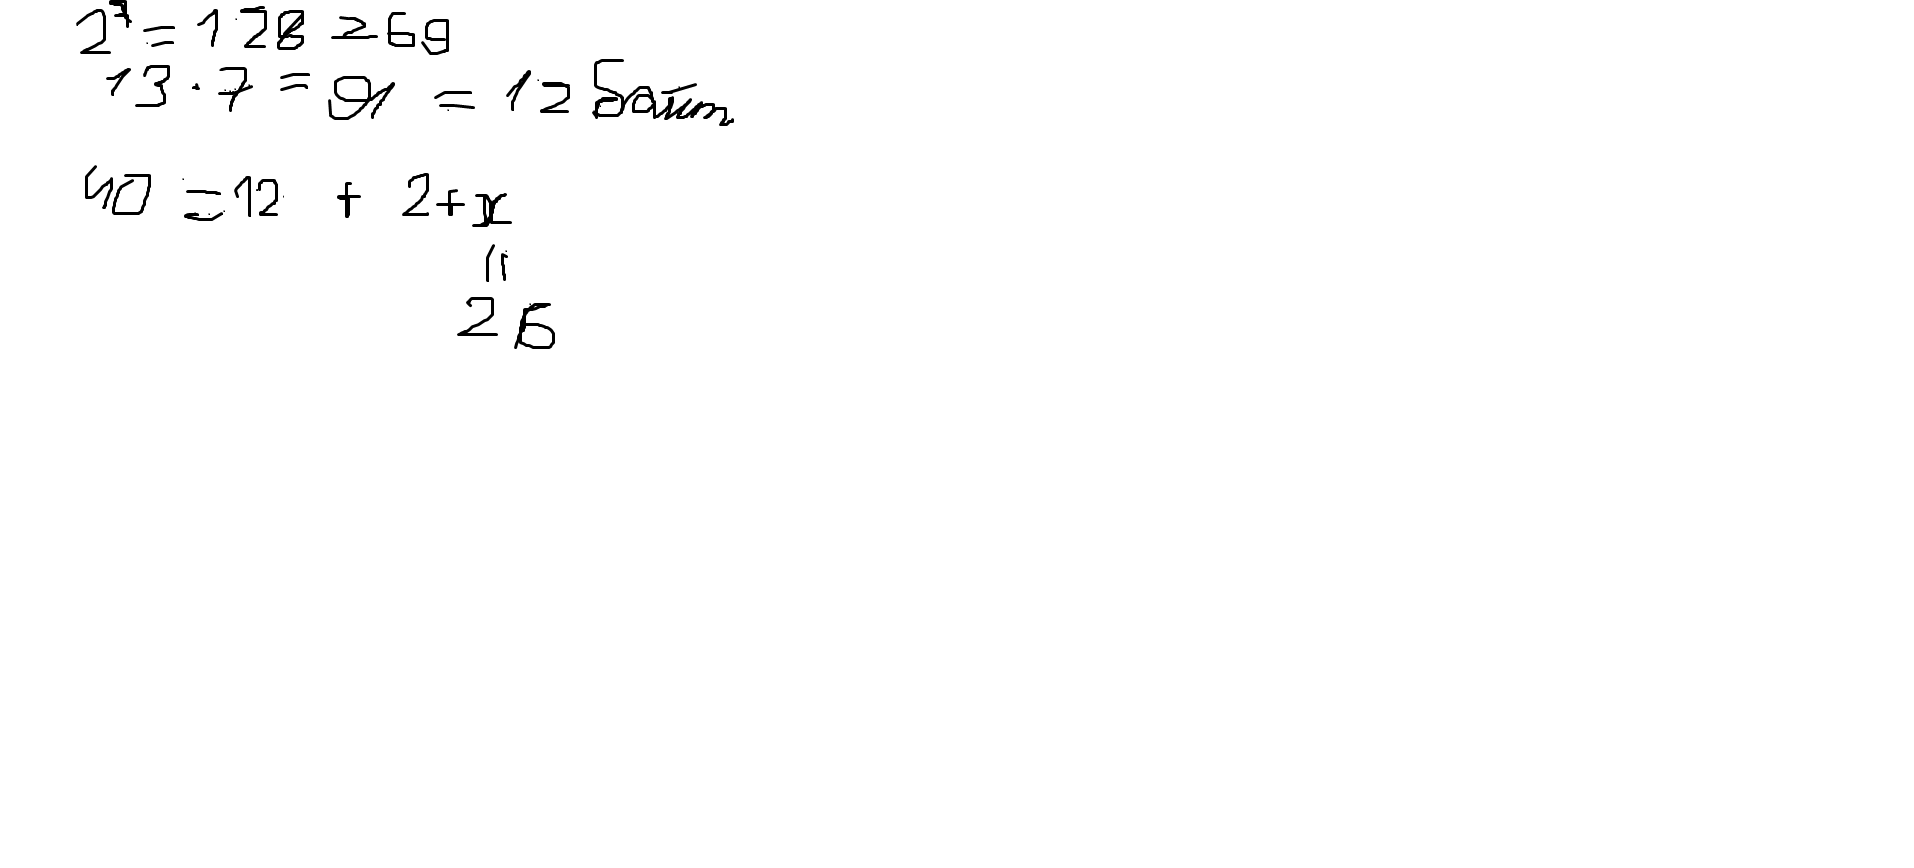 2⁷ = 128 ≥ 69
13 · 7 = 91 = 12 байт
40 = 12 + 2 + x
=
26